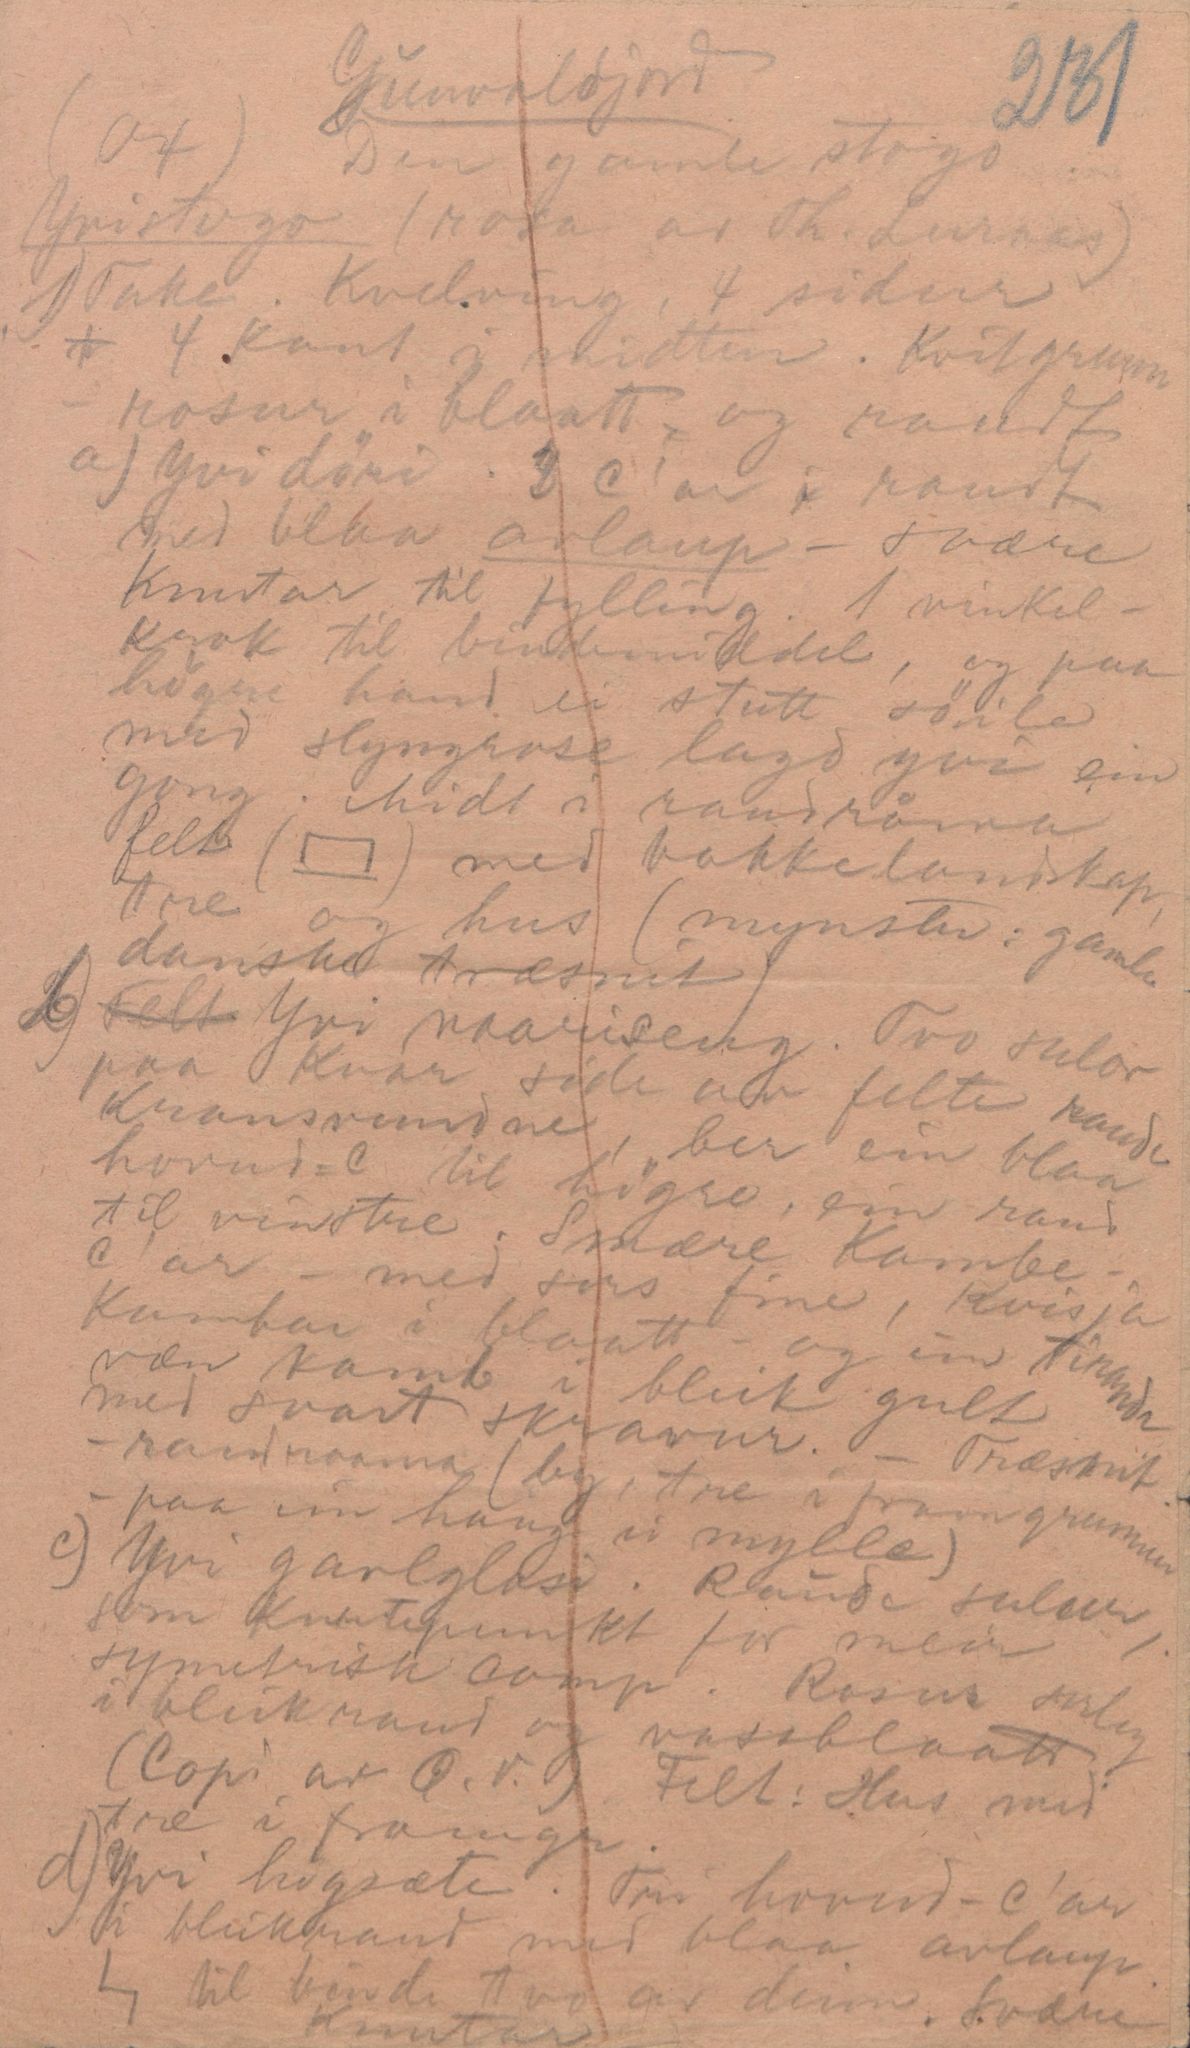 231
Gunvaldjord
(Ox) Den gamle stogo
Yvistogo (rosa av Th. Luraas)
1) Take. Kvelving, 4 sidur
4 kant i midten. Kvitgrunn
- rosur i blaatt, og raudt
a) Yvi döri. 3 C'ar i raudt
med blaa avlaup - svære
knutar til fylling. 1 vinkel-
krok til bindemiddel, og paa
högre hand ei stutt söile
med slyngrose lagd yvi ein
gong. Midt i raudråma
felt (▭) med bakkelandskap,
tre og hus (mynster: gamle
danske træsnit)
b) Felt Yvi naariseng. Tvo sulor
paa kvar side av felte raude
kransvundne, ber ein blaa
hovud=C til högre, ein raud
til vinstre. Smære Kambe-
C'ar - med sers fine, kvisja
Kambar i blaatt - og ein tirande
væn kamb i bleik gult
med svart skravur. - Træsnit
- raudraama (by, tre i framgrunnen
- paa ein haug ei mylle)
c) Yvi gavlglasi. Raude sulur,
som knutepunkt for meir
symetrisk comp. Rosur serleg
i bleikraud og vassblaatt.
(Copi av O.V.) Felt: Hus med
tre i framgr.
d) Yvi högsæte. Tri hovud-C'ar
i bleikraud med blaa avlaup.
til binde tvo av deim. Svære
Knutar